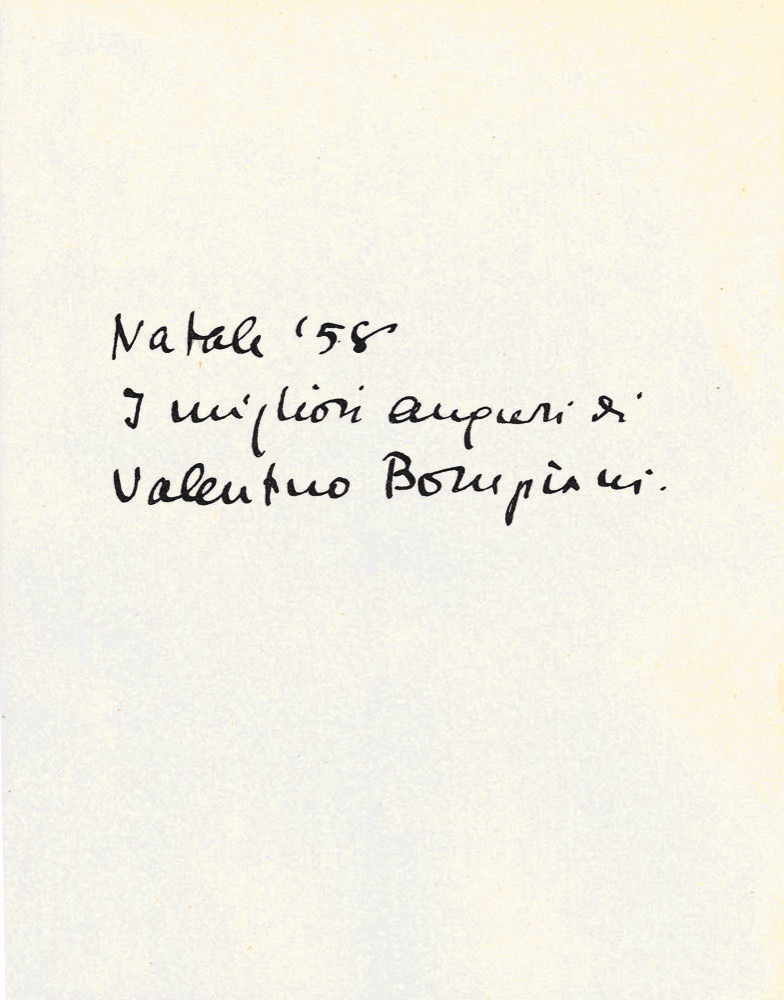 Natale '58
I migliori auguri di
Valentino Bompiani.